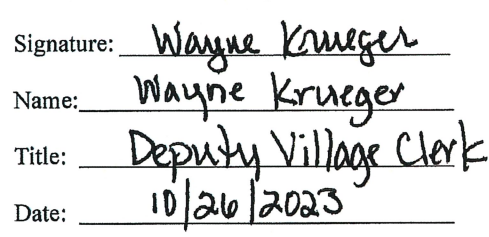 Signature: Wayne Krueger
Name: Wayne Krueger
Title: Deputy Village Clerk
Date: 10/26/2023